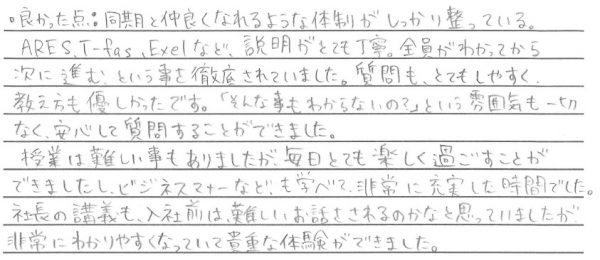 ◦良かった点：同期と仲良くなれるような体制がしっかり整っている。
ARES、T-fas、Exelなど、説明がとても丁寧。全員がわかってから
次に進む、という事を徹底されていました。質問も、とてもしやすく、
教え方も優しかったです。「そんな事もわからないの?」という雰囲気も一切
なく、安心して質問することができました。
授業は難しい事もありましたが、毎日とても楽しく過ごすことが
できましたし、ビジネスマナーなども学べて、非常に充実した時間でした。
社長の講義も、入社前は、難しいお話をされるのかなと思っていましたが
非常にわかりやすくなっていて貴重な体験ができました。